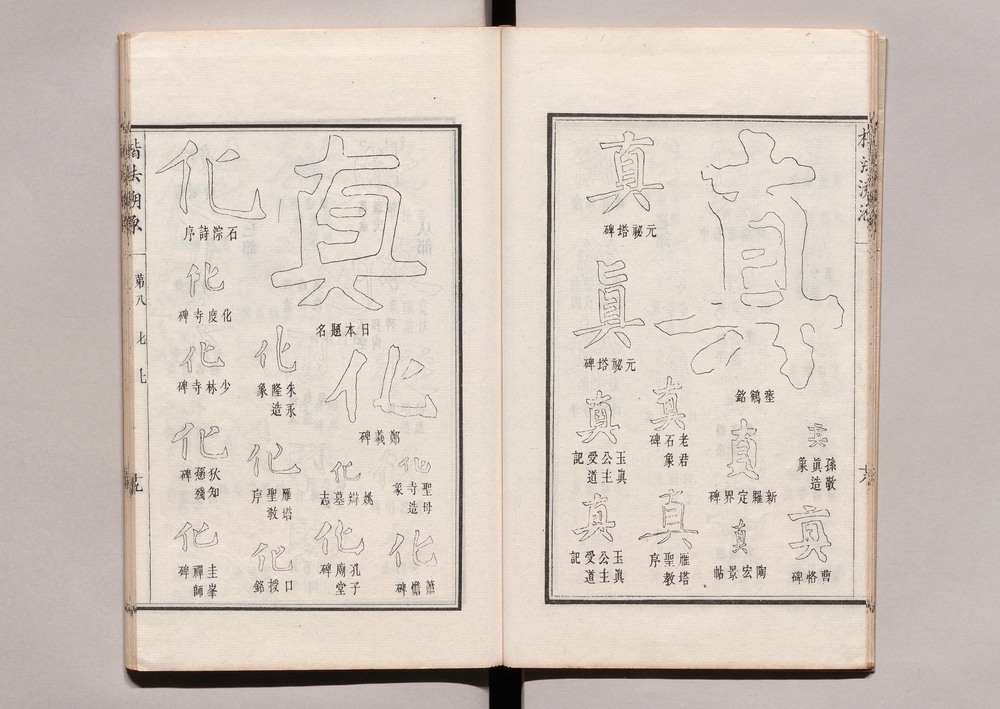 真
瘞鶴銘
真
孫敬
眞造
象
真
曹恪碑
真
新羅定界碑
真
陶宏景帖
真
老君
石象
碑
真
雁塔
聖教
序
真
元祕塔碑
眞
元祕塔碑
真
玉眞
公主
受道
記
真
玉眞
公主
受道
記
真
日本題名
化
鄭羲碑
化
聖母
寺造
象
化
蕭憺碑
化
姚辯墓志
化
孔子
廟堂
碑
化
朱永
隆造
象
化
雁塔
聖教
序
化
口授銘
化
石淙詩序
化
化度寺碑
化
少林寺碑
化
狄知
愻殘
碑
化
圭峯
禪師
碑
楷法溯源
第八